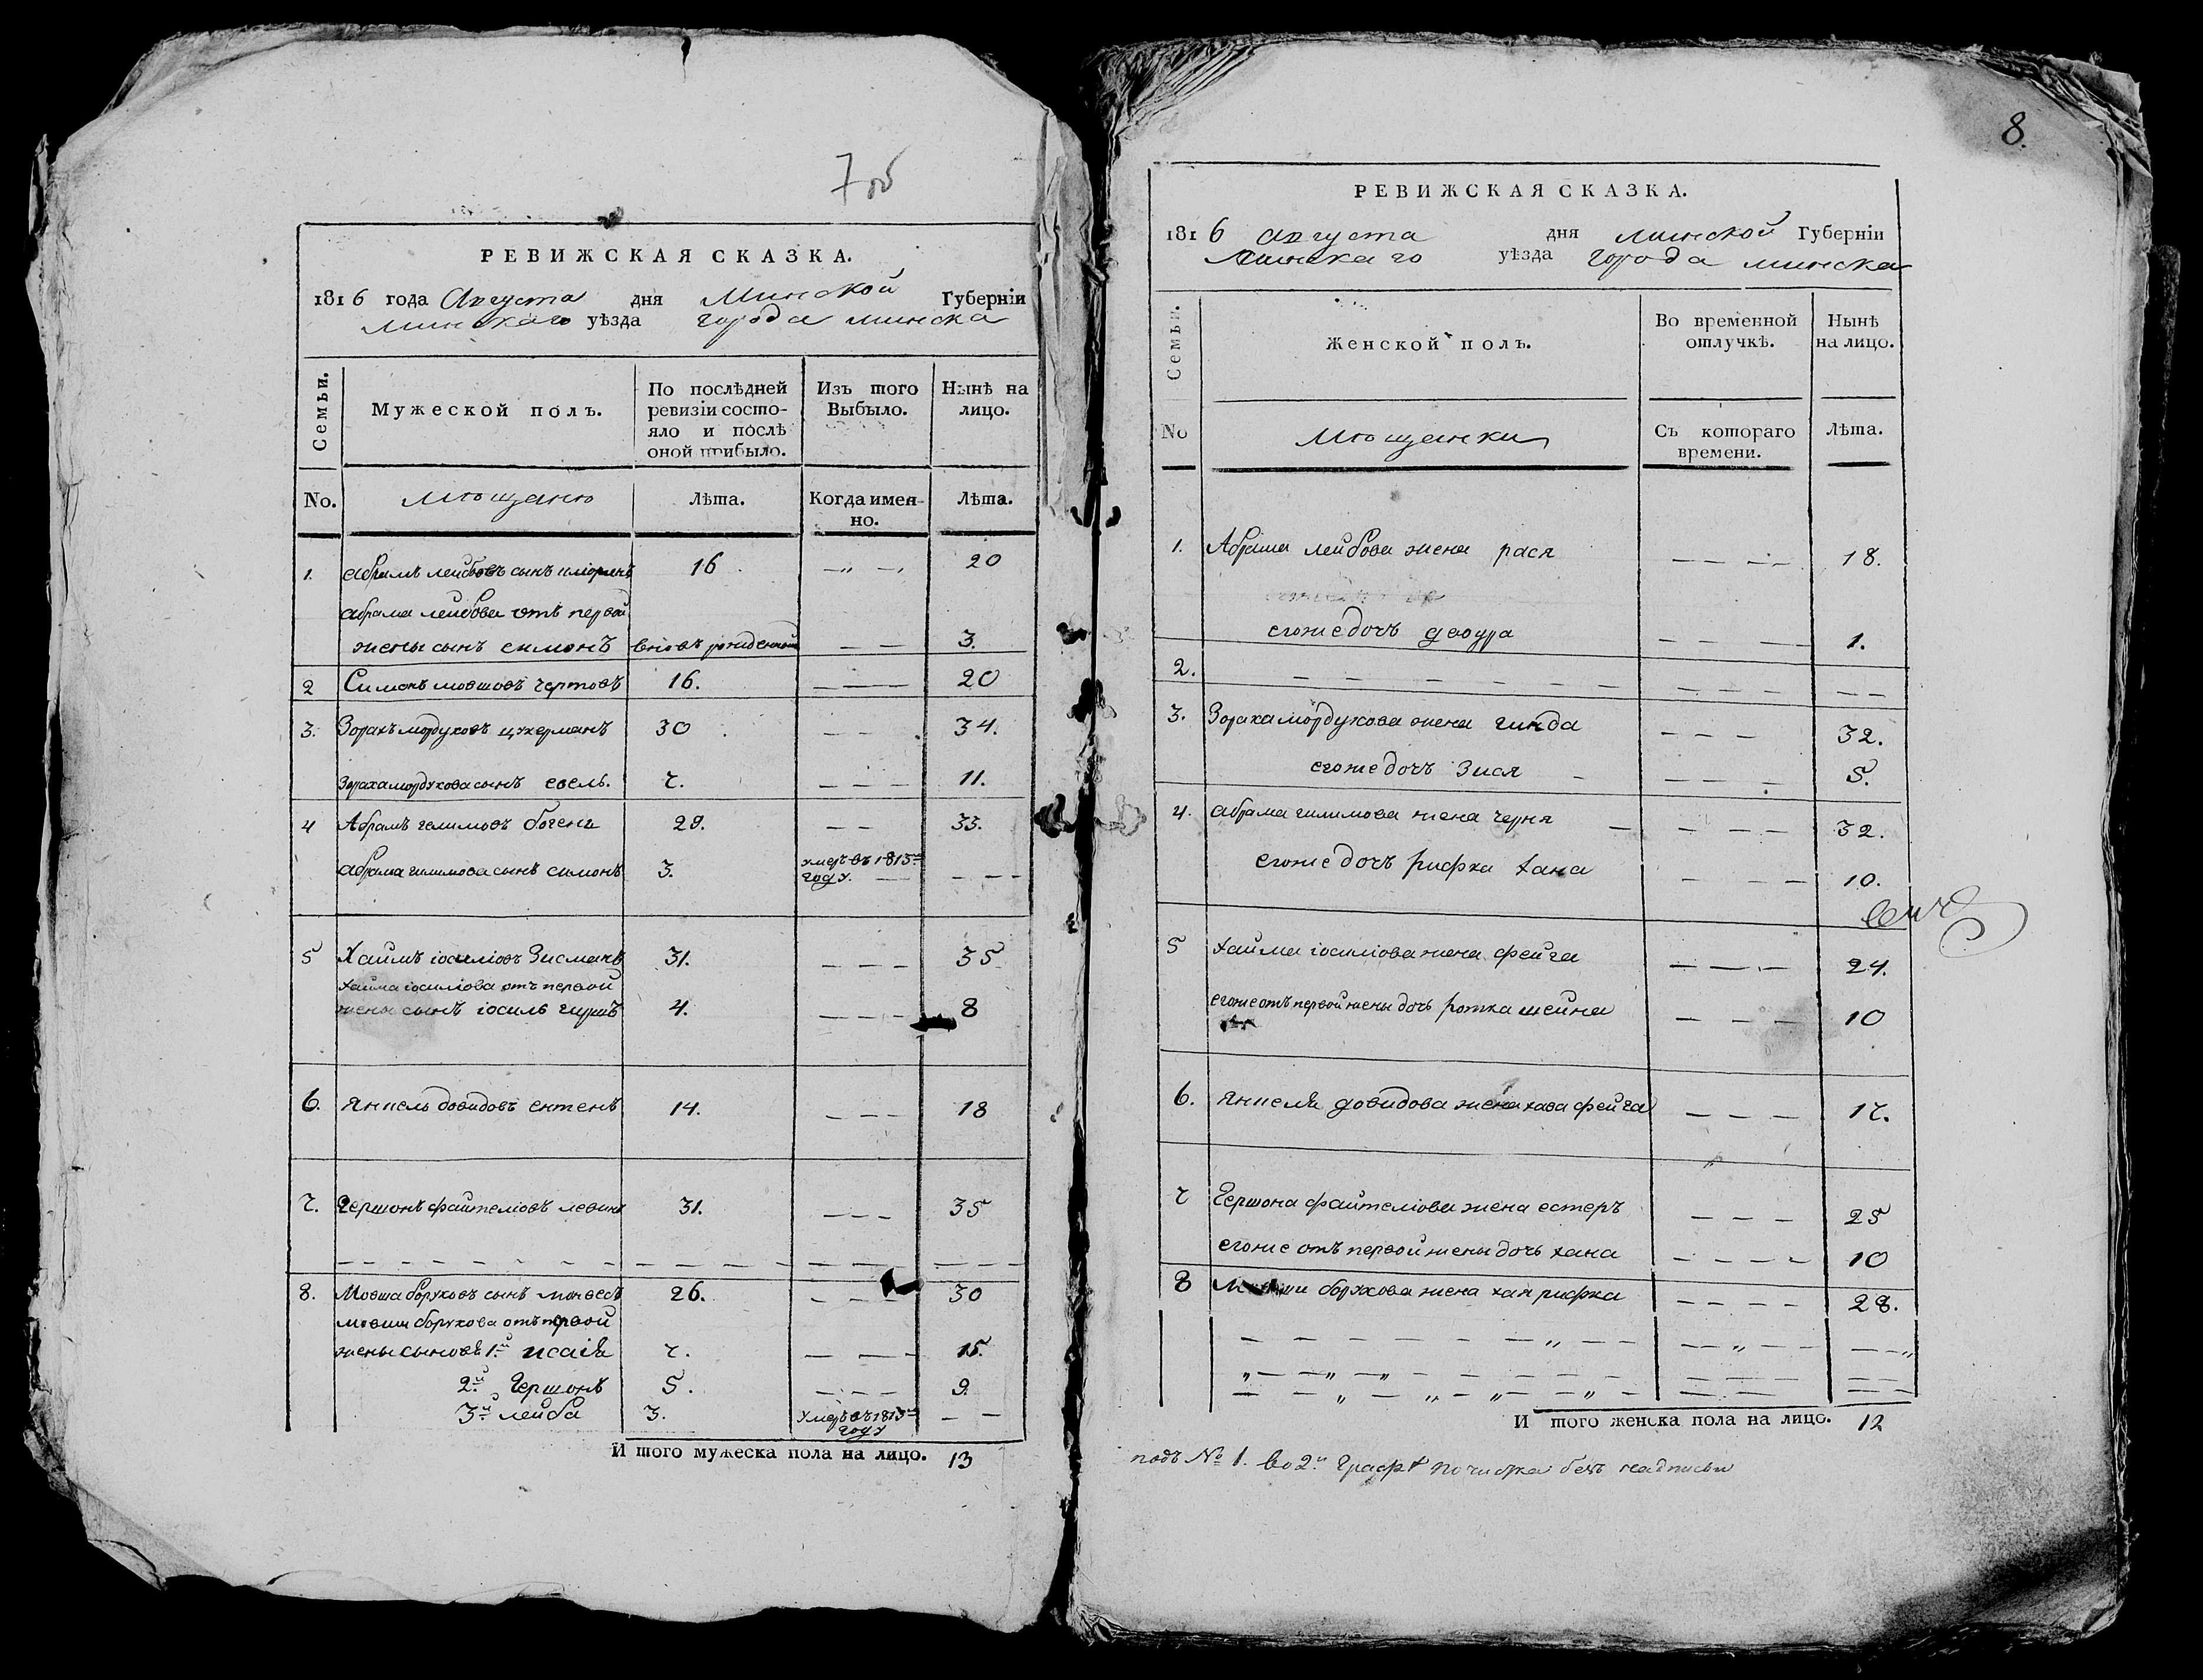 7 об
РЕВИЖСКАЯ СКАЗКА.
1816 года Августа дня Минской Губерніи
Минскаго уѣзда города минска
Семьи.
Мужеской полъ.
По послѣдней ревизіи состо-яло и послѣ оной прибыло.
Изъ того Выбыло.
Нынѣ на лицо.
No. мѣщанѣ Лѣта. Когда имен-но. Лѣта.
1. абрамъ лейбовъ сынъ 16 20
абрама лейбова отъ первой
жены сынъ симонъ вновь рожденной 3.
2 Симонъ мовшовъ чертовъ 16. 20
3. Зорахъ мордуховъ цукерманъ 30 34.
Зораха мордухова сынъ евель. 7. 11.
4 Абрамъ гилимовъ богенъ 29. 33.
абрама гилимова сынъ симонъ 3. умеръ въ 1813м году.
5 Хаимъ іосиліовъ Зисманъ 31. 35
хаима іосиліова отъ первой
жены сынъ іосиль гиршъ 4. 8
6. янкель довидовъ ентенъ 14. 18
7. Гершонъ файтеліовъ левинъ 31. 35
8. Мовша боруховъ сынъ 26. 30
мовши борухова отъ первой
жены сыновья 1й исаія 7. 15.
2й Гершонъ 5. 9.
3й лейба 3. умеръ въ 1813м году
И того мужеска пола на лицо. 13
8.
РЕВИЖСКАЯ СКАЗКА.
1816 августа дня минской Губерніи
Минскаго уѣзда города минска
Семьи.
Женской полъ.
Во временной отлучкѣ.
Нынѣ на лицо.
No мѣщанки Съ котораго времени. Лѣта.
1. Абрама лейбова жена рася 18.
егоже дочъ двоура 1.
2.
3. Зораха мордухова жена гинда 32.
егоже дочъ Зися 5.
4. абрама гилимова жена черня 32.
егоже дочъ рифка хана 10.
5 хаима іосиліова жена фейга 24.
егоже отъ первой жены дочь ротка шейна 10
6. янкеля довидова жена хава фейга 17.
7 Гершона файтеліова жена естеръ 25
егоже отъ первой жены дочь хана 10
8 Мовши борухова жена хая рифка 28.
И того женска пола на лицо. 12
подъ № 1. во 2й графѣ почистка безъ надписи